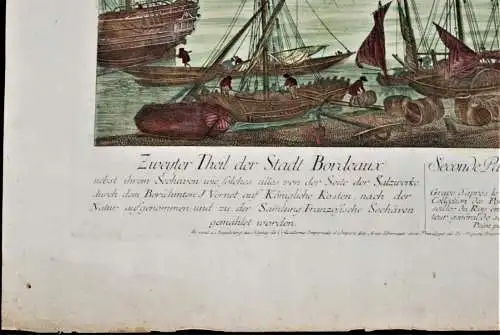 Zweyter Theil der Stadt Bordeaux
nebst ihrem Seehaven wie solches alles von der Seite der Salzwerke
durch den Berühmten J Vernet auf Königliche Kosten nach der
Natur aufgenommen, und zu der Samlung Französische Seehäven
gemählet worden.
Seconde Pa
Gravé d'après le
Collection des Po
teur général de s
Peint p